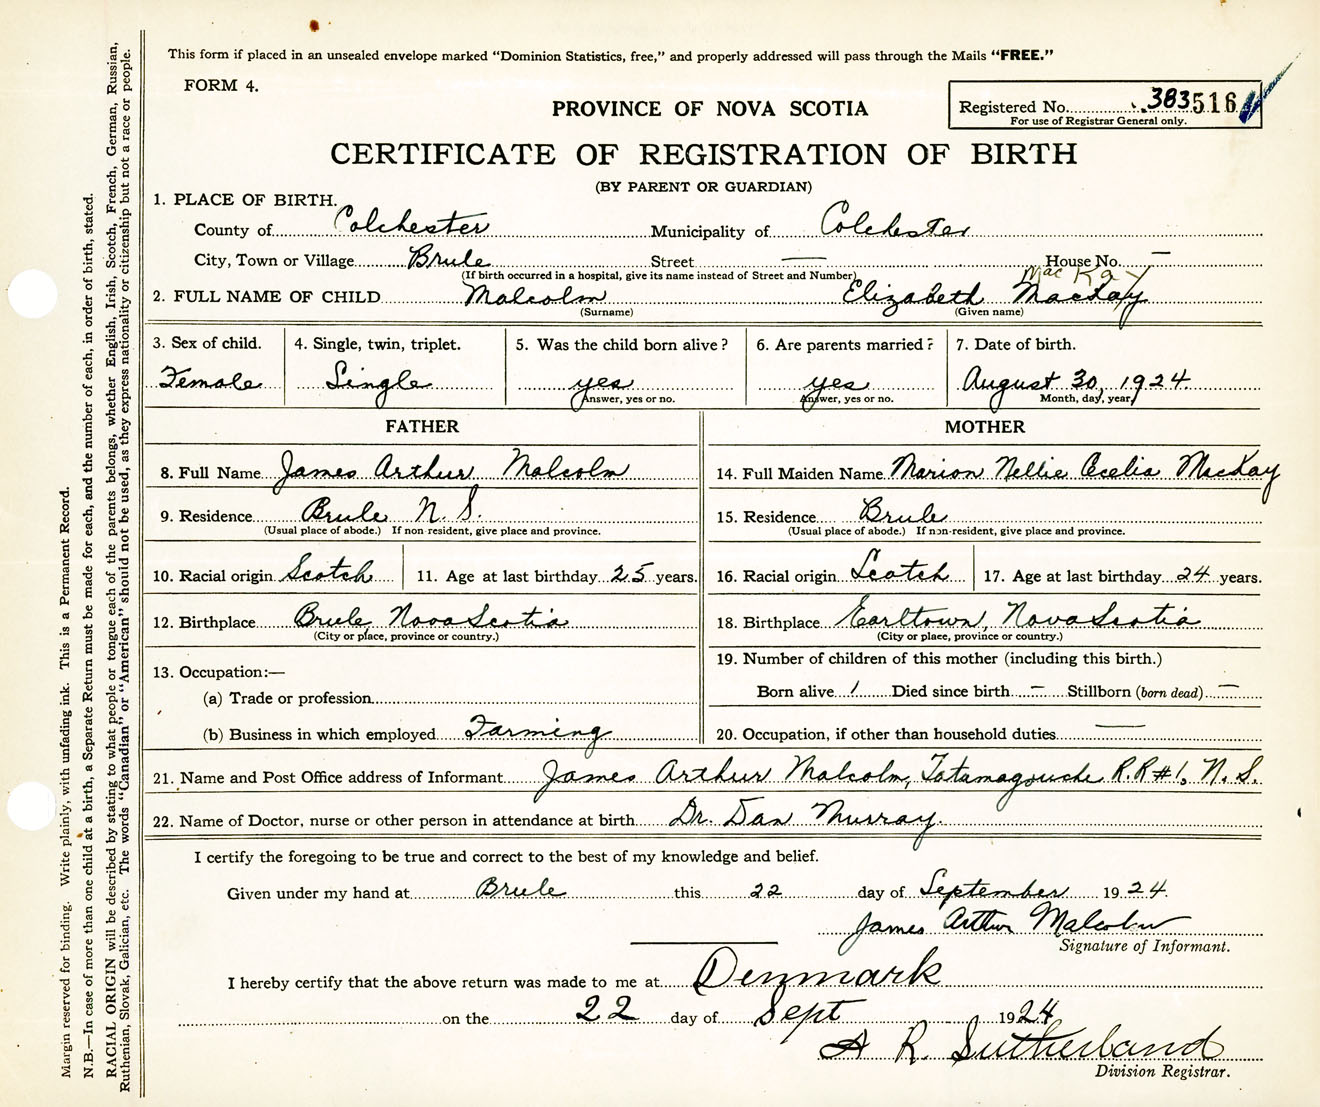 This form if placed in an unsealed envelope marked "Dominion Statistics, free," and properly addressed will pass through the Mails "FREE."
FORM 4.
PROVINCE OF NOVA SCOTIA
Registered No. 383516
For use of Registrar General only.
CERTIFICATE OF REGISTRATION OF BIRTH
(BY PARENT OR GUARDIAN)
1. PLACE OF BIRTH.
County of Colchester Municipality of Colchester
City, Town or Village Brule Street — House No. —
(If birth occurred in a hospital, give its name instead of Street and Number)
MacKay
2. FULL NAME OF CHILD Malcolm Elizabeth MacKay
(Surname) (Given name)
3. Sex of child. 4. Single, twin, triplet. 5. Was the child born alive? 6. Are parents married? 7. Date of birth.
Female Single yes yes August 30, 1924
Answer, yes or no. Answer, yes or no. Month, day, year
FATHER MOTHER
8. Full Name James Arthur Malcolm 14. Full Maiden Name Marion Nellie Cecelia MacKay
9. Residence Brule N. S. 15. Residence Brule
(Usual place of abode.) If non-resident, give place and province. (Usual place of abode.) If non-resident, give place and province.
10. Racial origin Scotch 11. Age at last birthday 25 years. 16. Racial origin Scotch 17. Age at last birthday 24 years.
12. Birthplace Brule, Nova Scotia 18. Birthplace Earltown, Nova Scotia
(City or place, province or country.) (City or place, province or country.)
19. Number of children of this mother (including this birth.)
13. Occupation:—
Born alive 1 Died since birth — Stillborn (born dead) —
(a) Trade or profession
(b) Business in which employed Farming 20. Occupation, if other than household duties —
21. Name and Post Office address of Informant James Arthur Malcolm, Tatamagouche R.R #1, N. S.
22. Name of Doctor, nurse or other person in attendance at birth Dr. Dan Murray.
I certify the foregoing to be true and correct to the best of my knowledge and belief.
Given under my hand at Brule this 22 day of September 1924.
James Arthur Malcolm
Signature of Informant.
I hereby certify that the above return was made to me at Denmark
on the 22 day of Sept 1924
A R. Sutherland
Division Registrar.
Margin reserved for binding. Write plainly, with unfading ink. This is a Permanent Record.
N.B.—In case of more than one child at a birth, a Separate Return must be made for each, and the number of each, in order of birth, stated.
RACIAL ORIGIN will be described by stating to what people or tongue each of the parents belongs, whether English, Irish, Scotch, French, German, Russian,
Ruthenian, Slovak, Galician, etc. The words "Canadian" or "American" should not be used, as they express nationality or citizenship but not a race or people.